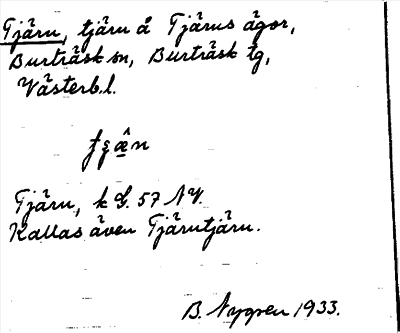 Tjäru, tjäru å Tjärus ägor,
Burträsk sn, Burträsk tg,
Västerb.l.
Tjäru, k G. 57 NV.
Kallas även Tjärutjäru.
B. Nygren 1933.